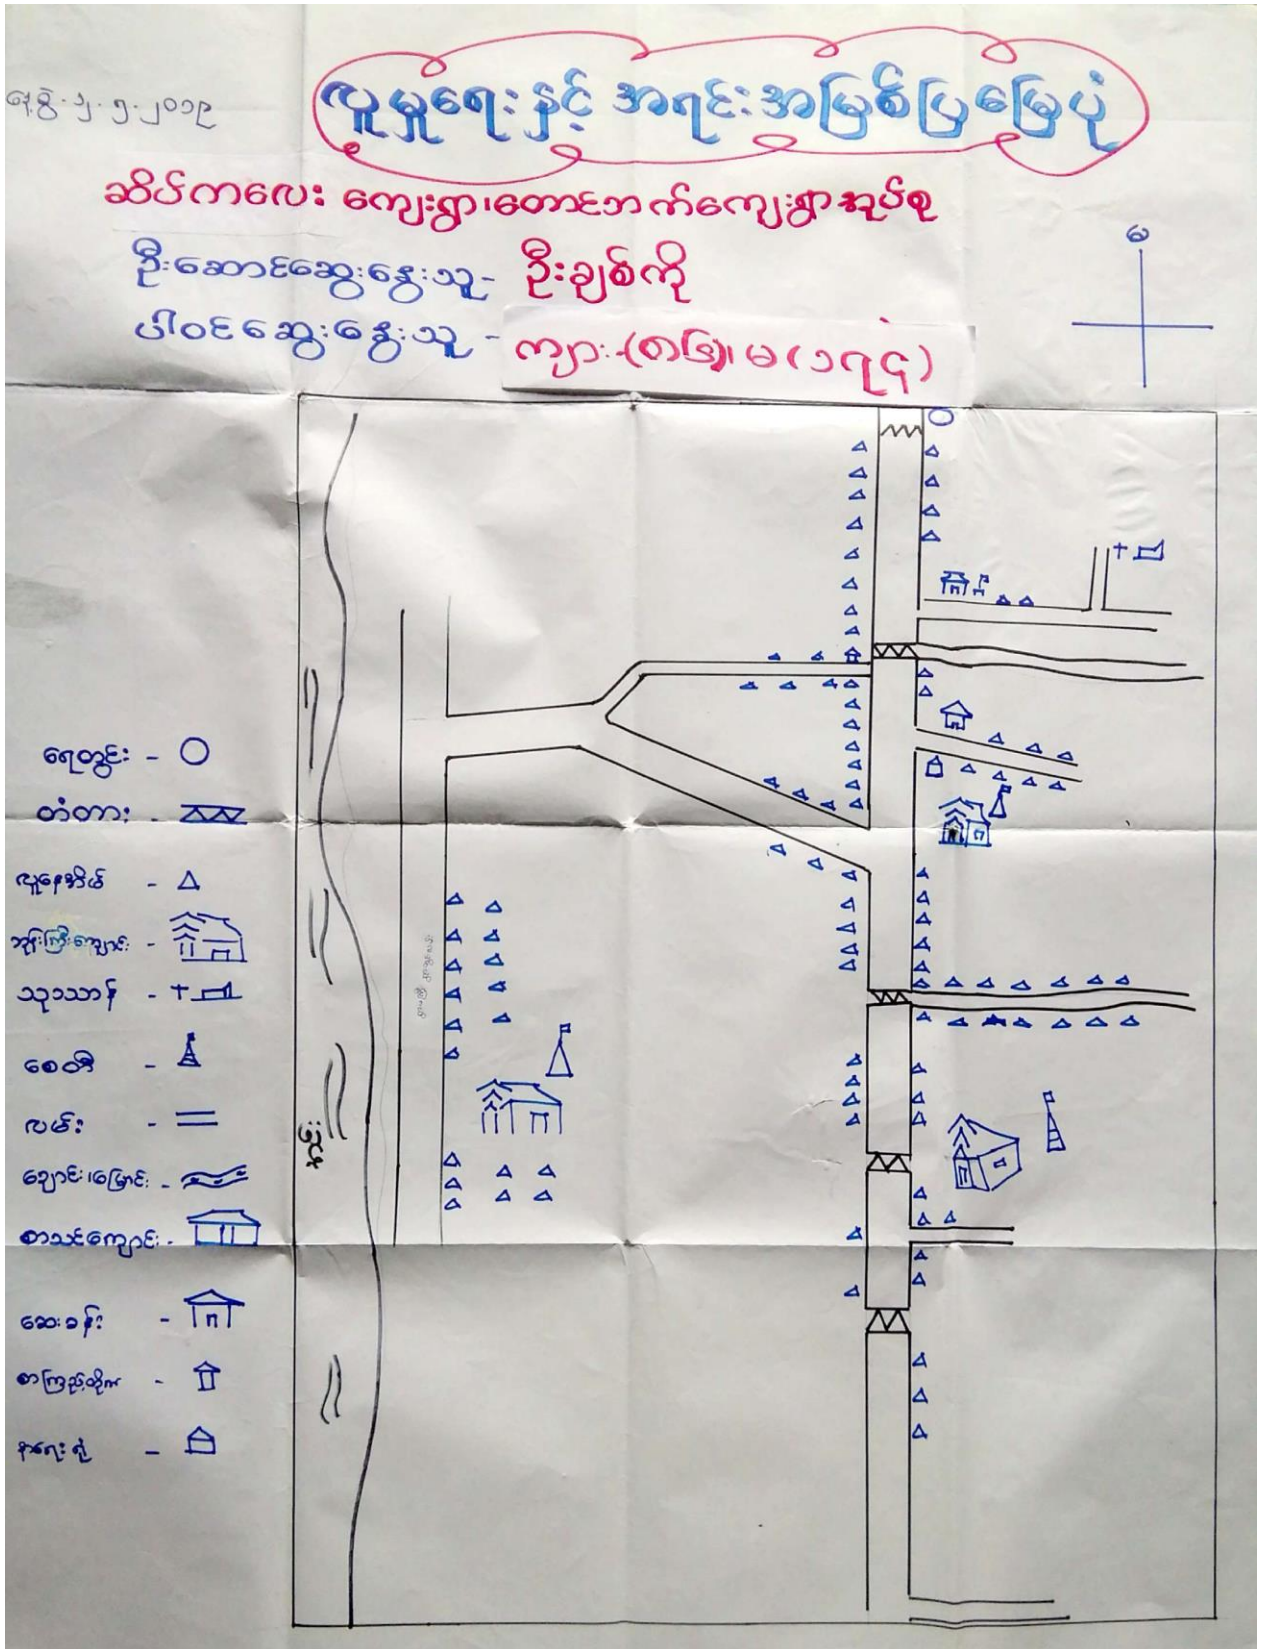 နေ့စွဲ-၁၂.၅.၂၀၁၉
လူမှုရေးနှင့် အရင်းအမြစ်ပြမြေပုံ
ဆိပ်ကလေး ကျေးရွာ၊တောင်ဘက်ကျေးရွာအုပ်စု
ဦးဆောင်ဆွေးနွေးသူ- ဦးချစ်ကို
ပါဝင်ဆွေးနွေးသူ -
မ
ရေတွင်း -
တံတား -
လူနေအိမ် -
ဘုန်းကြီးကျောင်း -
သုသာန် -
စေတီ -
လမ်း -
ချောင်း၊မြောင်း -
စာသင်ကျောင်း -
ဆေးခန်း -
စာကြည့်တိုက် -